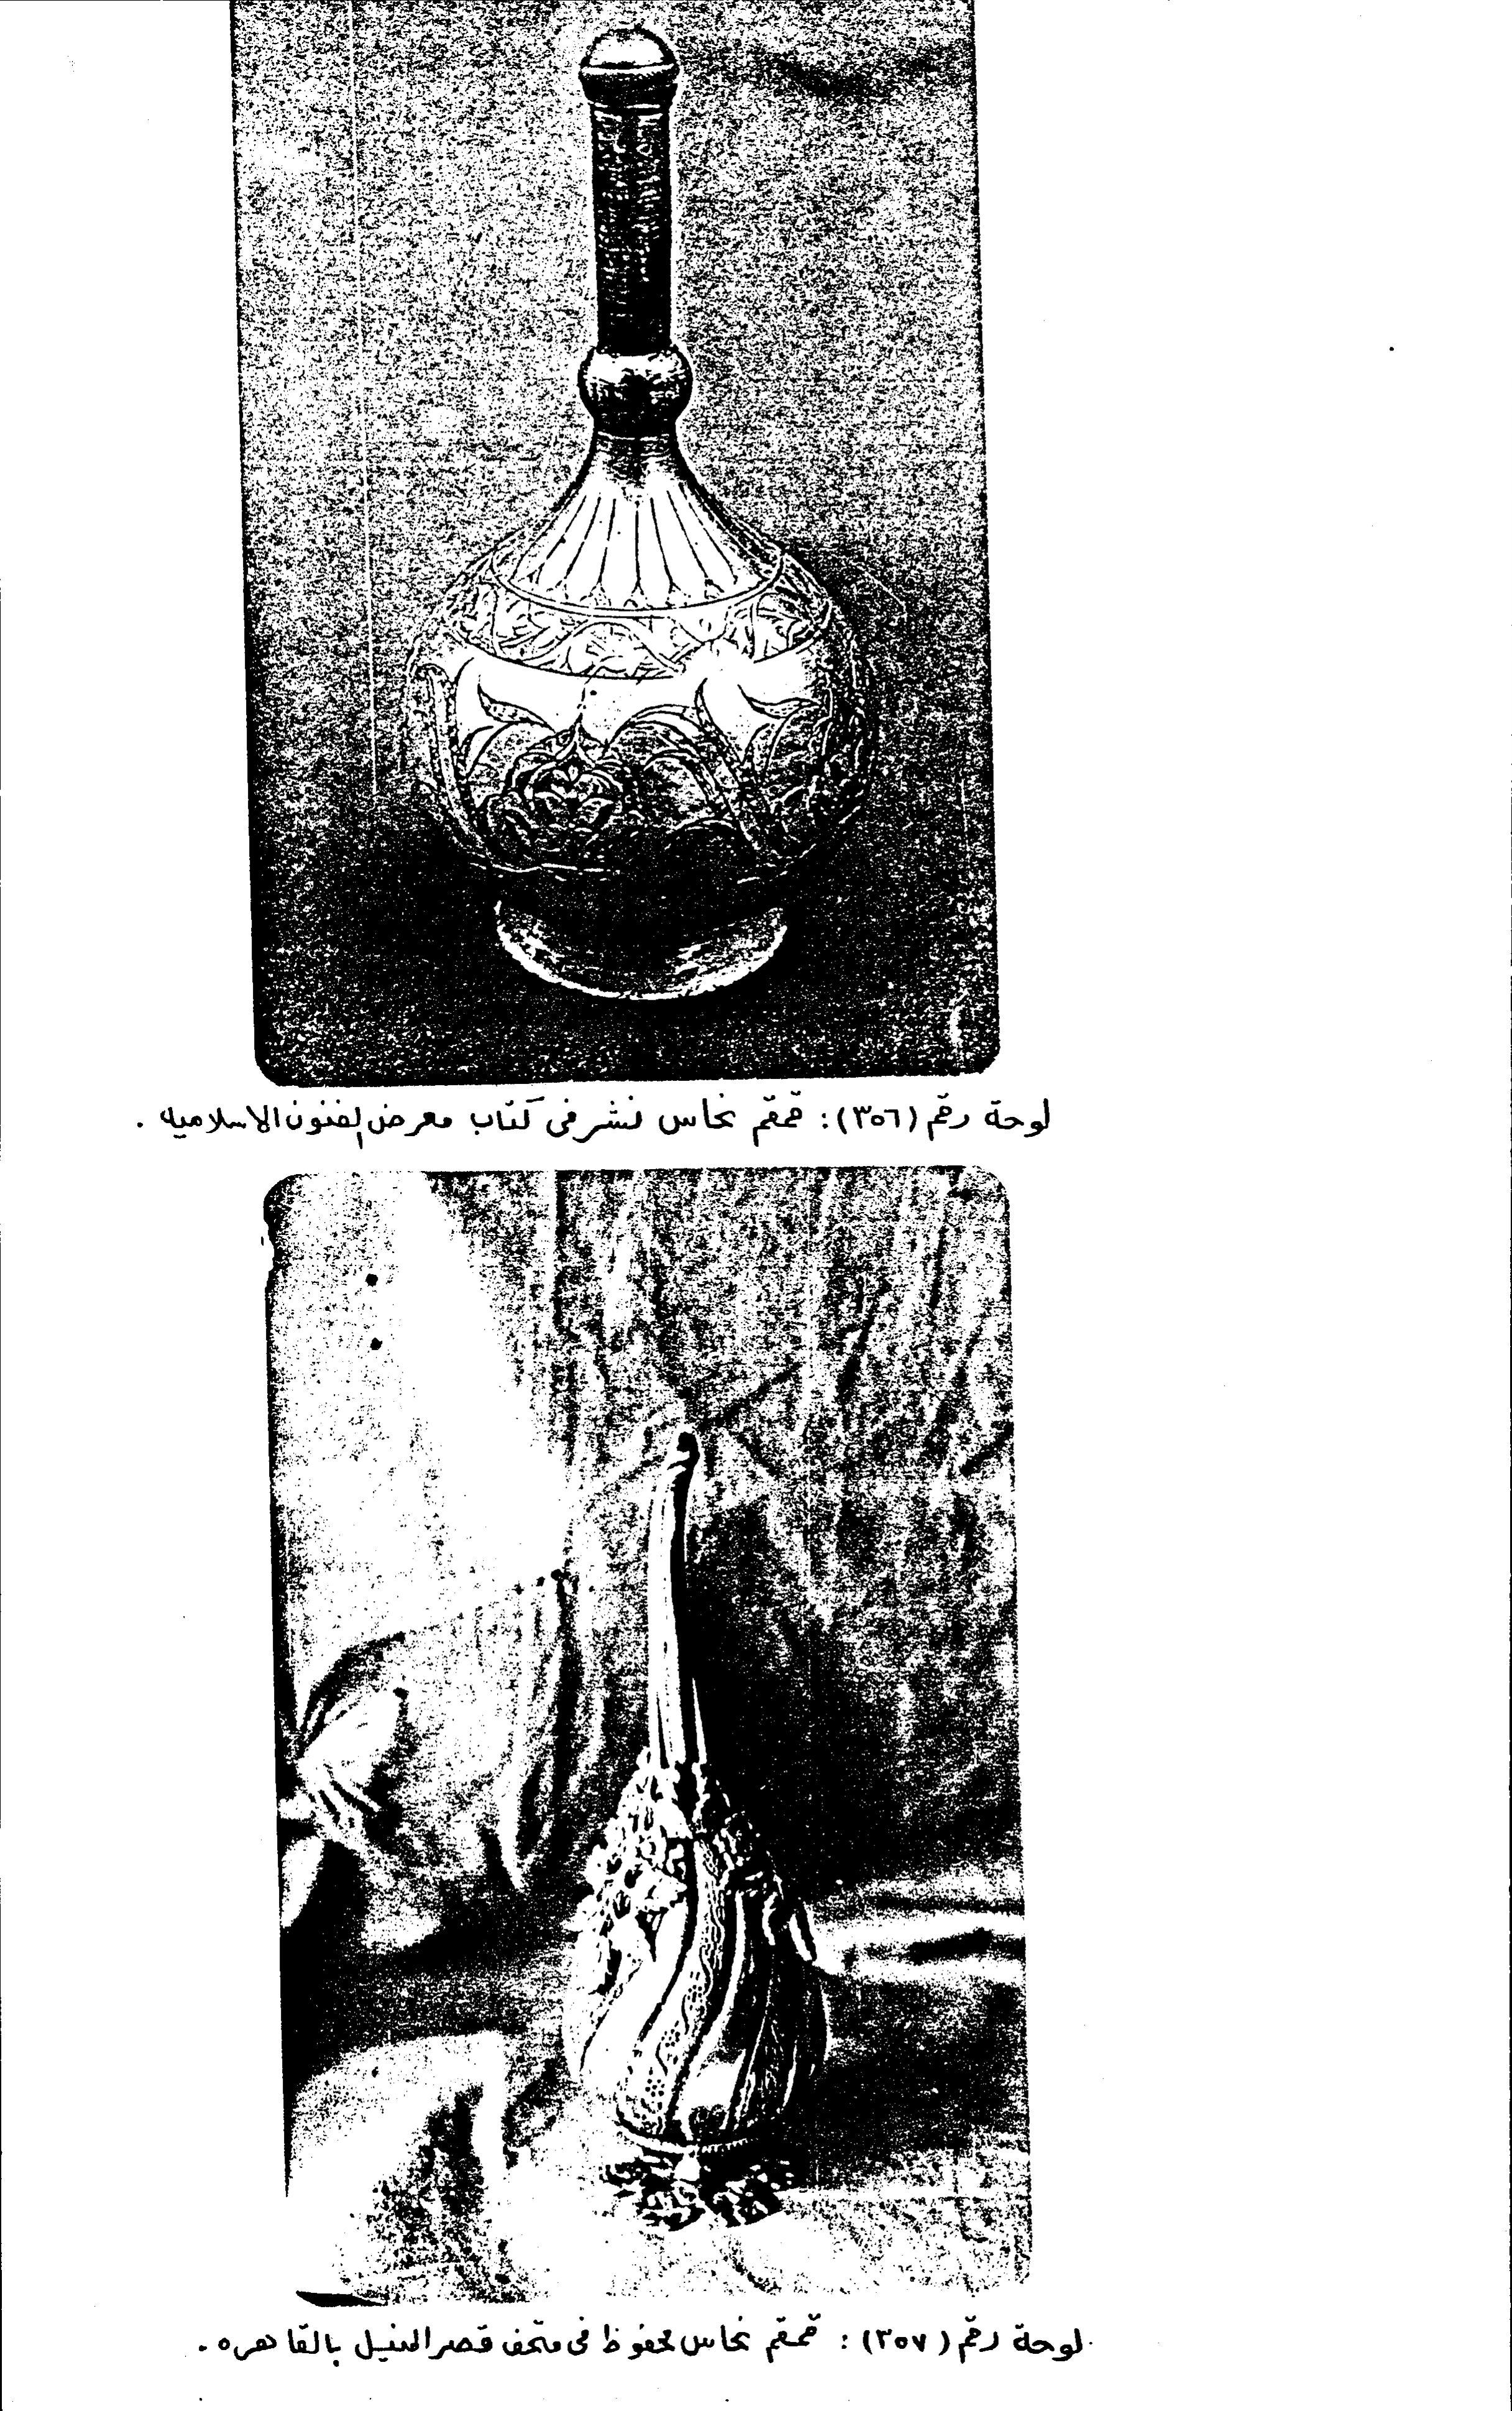 لوحة رقم (٣٥٦): قمقم نحاس نشر فى كتاب معرض الفنون الاسلاميه .
لوحة رقم (٣٥٧) : قمقم نحاس محفوظ فى متحف قصر المنيل بالقاهره .